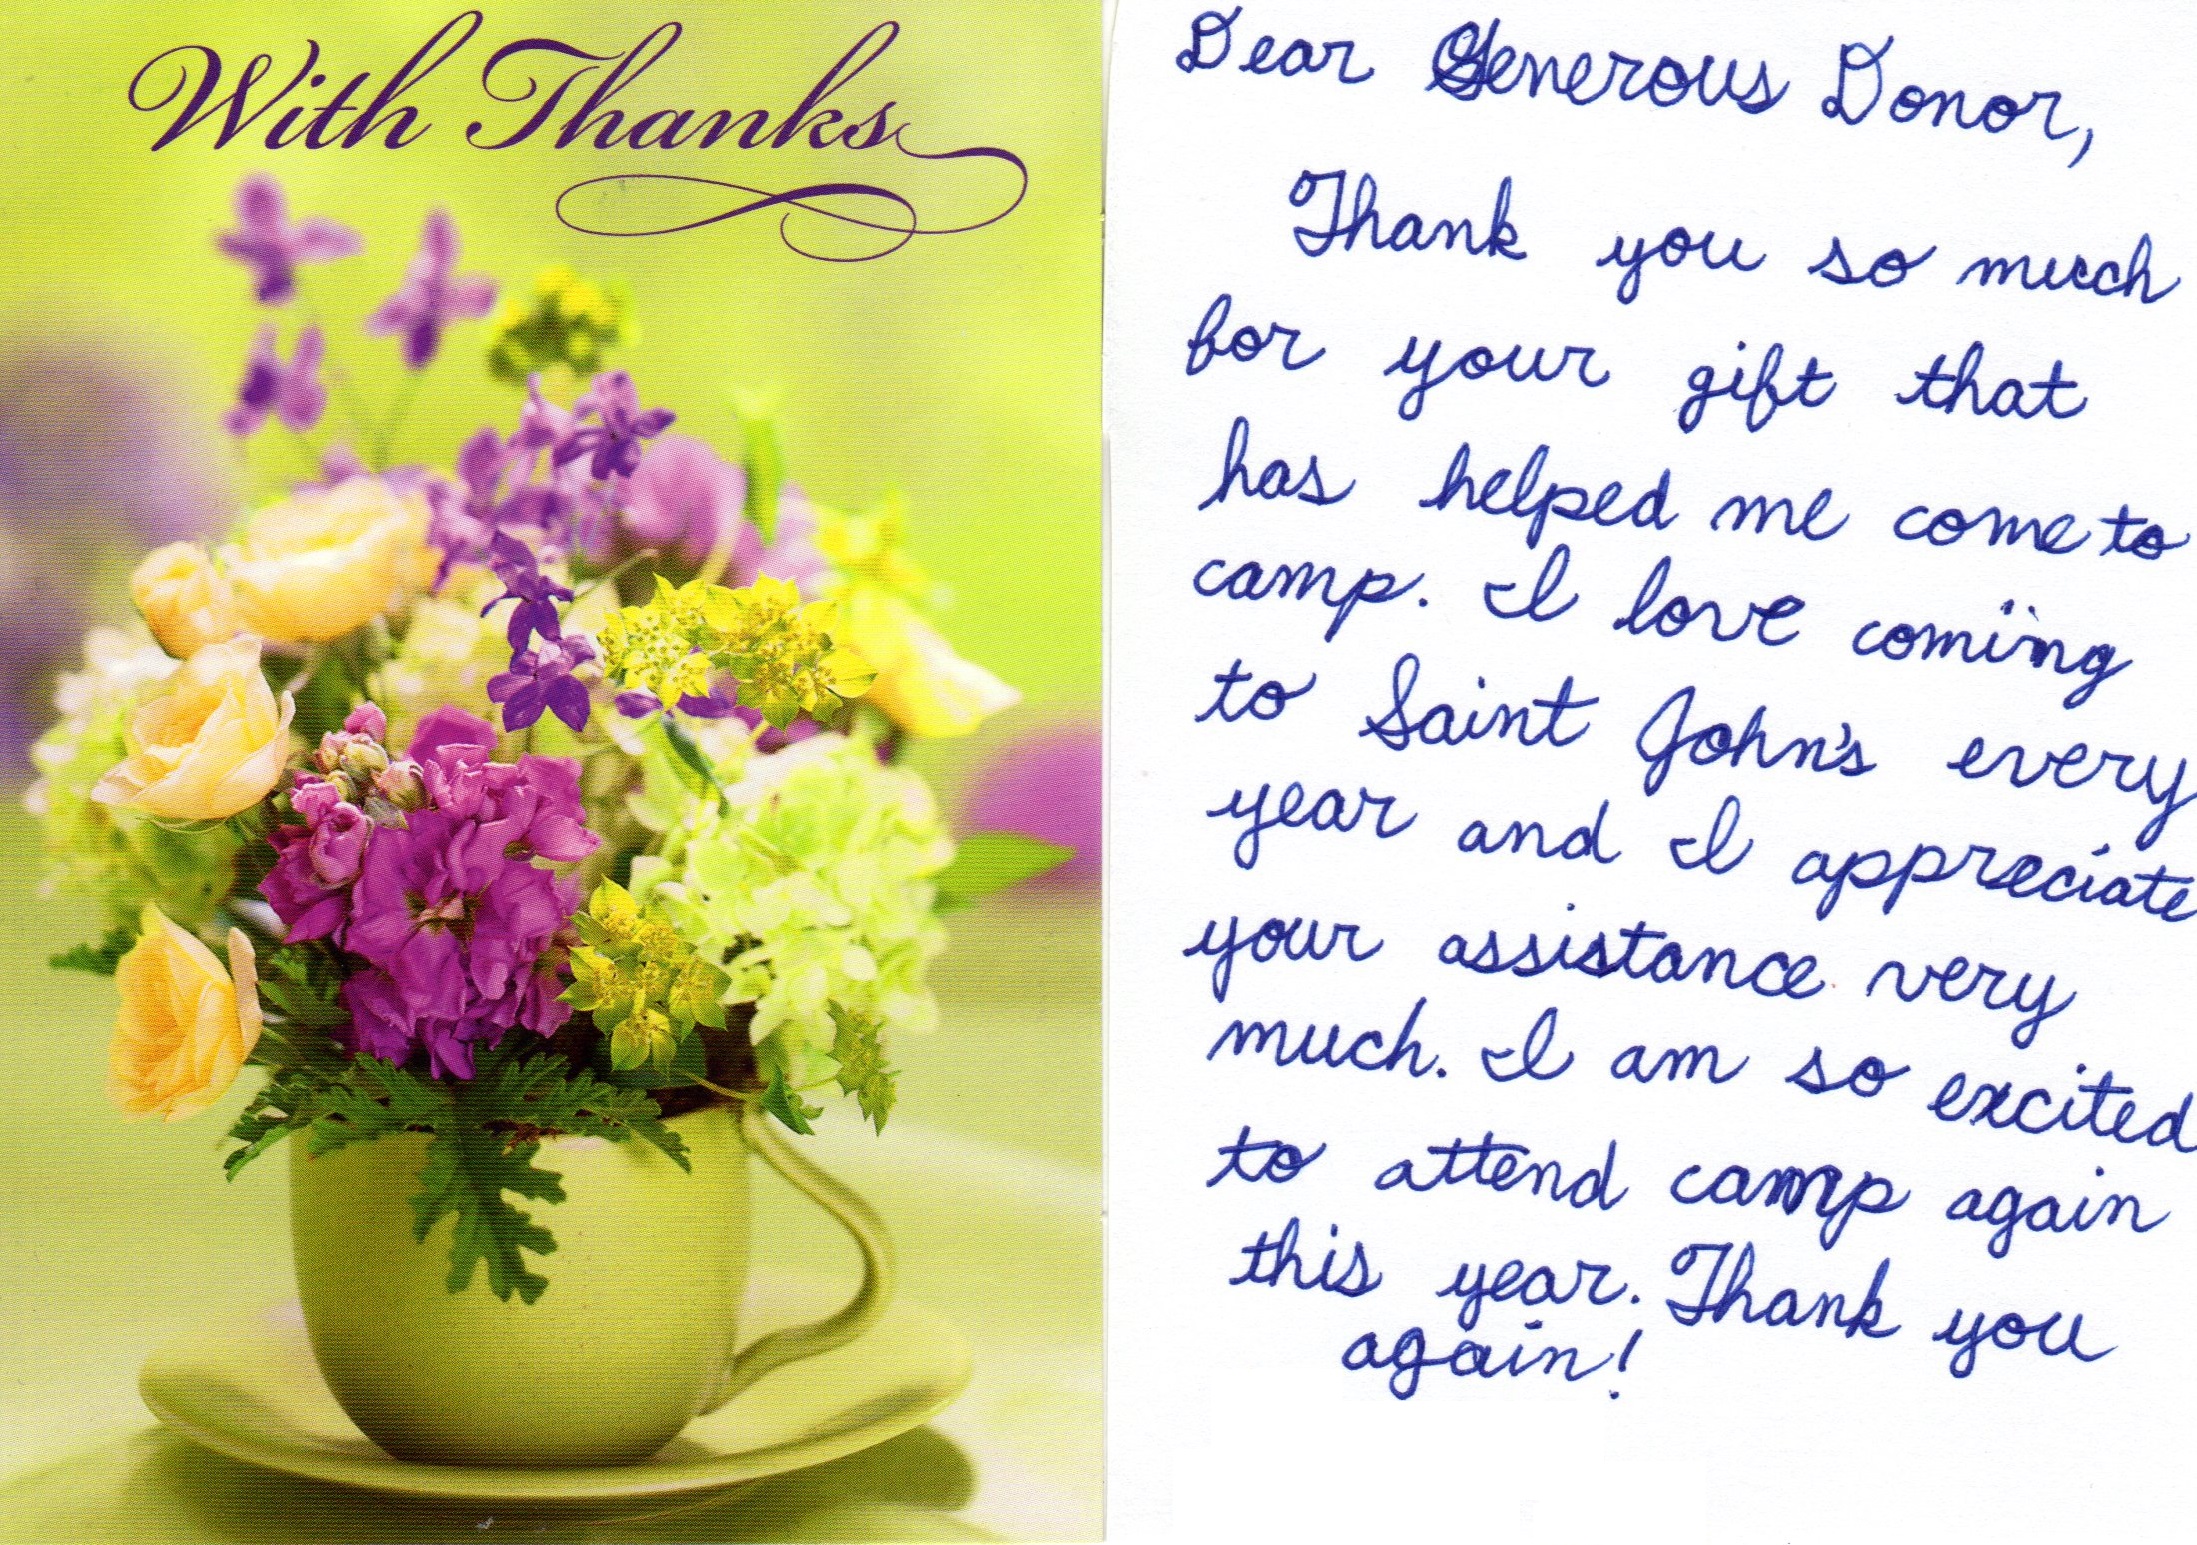 With Thanks
Dear Generous Donor,
Thank you so much
for your gift that
has helped me come to
camp. I love coming
to Saint John's every
year and I appreciate
your assistance very
much. I am so excited
to attend camp again
this year. Thank you
again!